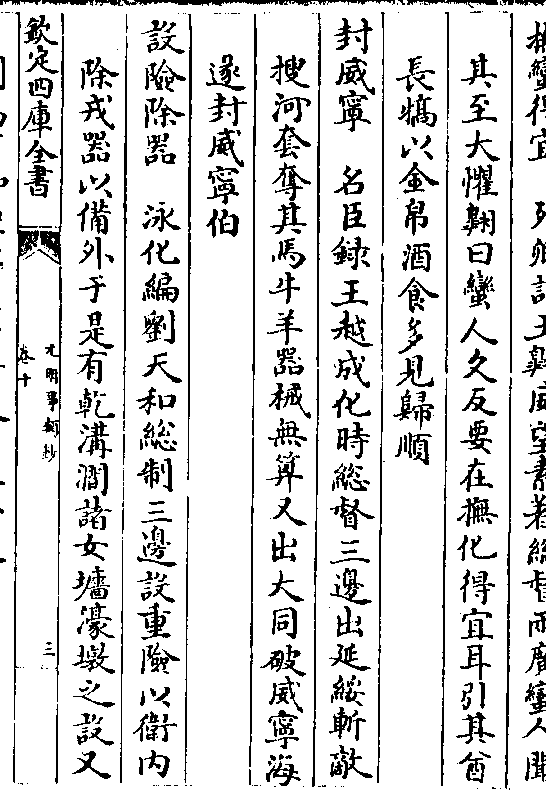 撫蠻得宜 列卿記王翱威望素著總督兩廣蠻人聞
其至大懼翱曰蠻人久反要在撫化得宜耳引其酋
長犒以金帛酒食多見歸順
封威寧 名臣録王越成化時總督三邊出延綏斬敵
搜河套奪其馬牛羊器械無算又出大同破威寧海
遂封威寧伯
設險除器 泳化編劉天和総制三邊設重險以衛内
除戎器以備外于是有乾溝澗諸女墻濠墩之設又
欽定四庫全書
元明事類鈔
卷十
三